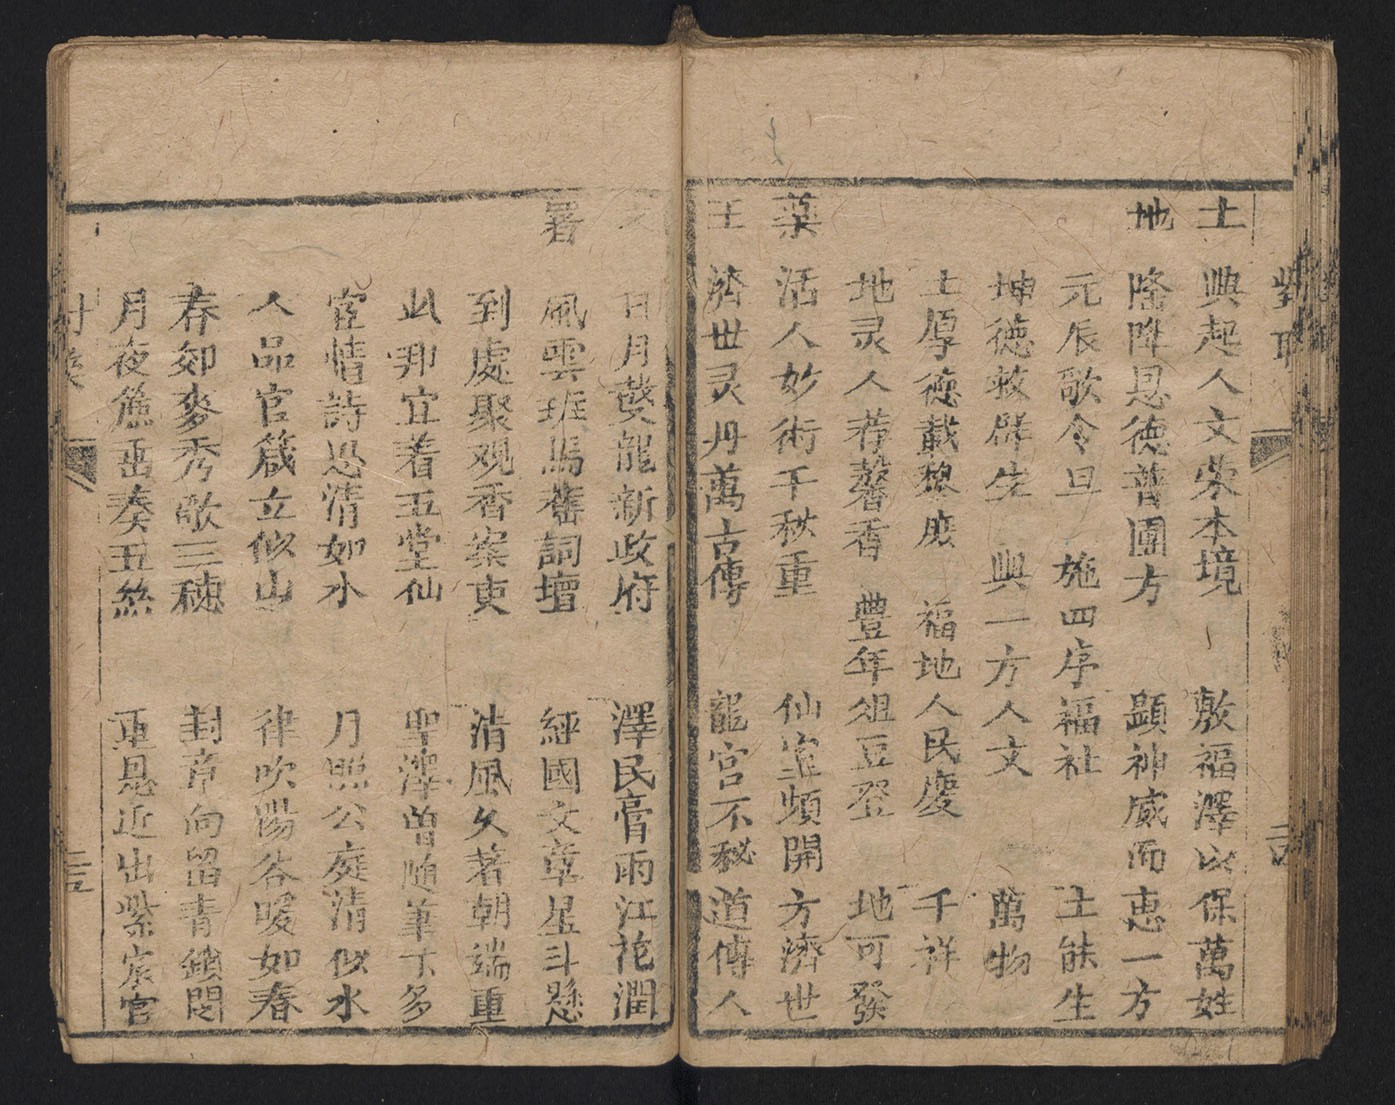 對聯
土 興起人文崇本境 敷福澤以保萬姓
地 隆降恩德普團方 顕神威而恵一方
元辰歌令旦 施四序福社 土能生
坤德敕群生 興一方人文 萬物
土厚德載黎庶 福地人民慶 千祥
地灵人荐馨香 豊年俎豆登 地可發
藥 活人妙術千秋重 仙室頻開方濟世
王 濟世灵丹萬古傳 龍宮不秘道傳人
日月夔龍新政府 澤民膏雨江花潤
署 風雲班馬舊詞壇 經國文章星斗懸
到處聚观香案吏 清風久著朝端重
此邦宜着玉堂仙 聖澤曾随筆下多
宦情詩思清如水 月照公庭清似水
人品官箴立似山 律吹陽谷暖如春
春郊麥秀歌三穗 封章向留青鎖閣
月夜簷 奏五絲 重恩近出紫宸宮